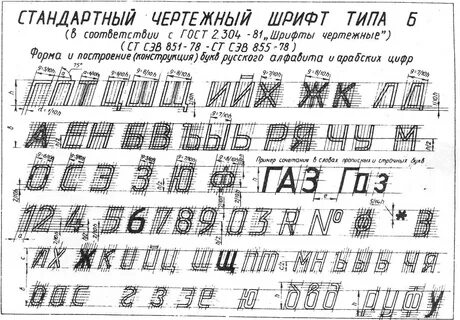 СТАНДАРТНЫЙ ЧЕРТЕЖНЫЙ ШРИФТ ТИПА Б
(в соответствии с ГОСТ 2.304 -81 „Шрифты чертежные")
(СТ СЭВ 851-78 - СТ СЭВ 855-78)
Форма и построение (конструкция) букв русского алфавита и арабских цифр
ГПТЦШЩ ИЙХ ЖК ЛД
А ЕН БВ ЪЫЬ РЯ ЧУ М
Пример сочетания в словах прописных и строчных букв
ОСЭЗЮФ ГАЗ Газ
12 4 5 6 7 8 9 0 3 R № Ф * В
ах жк ийц шщ пт мнъыь чя
оас г з э е ю бвд руфу